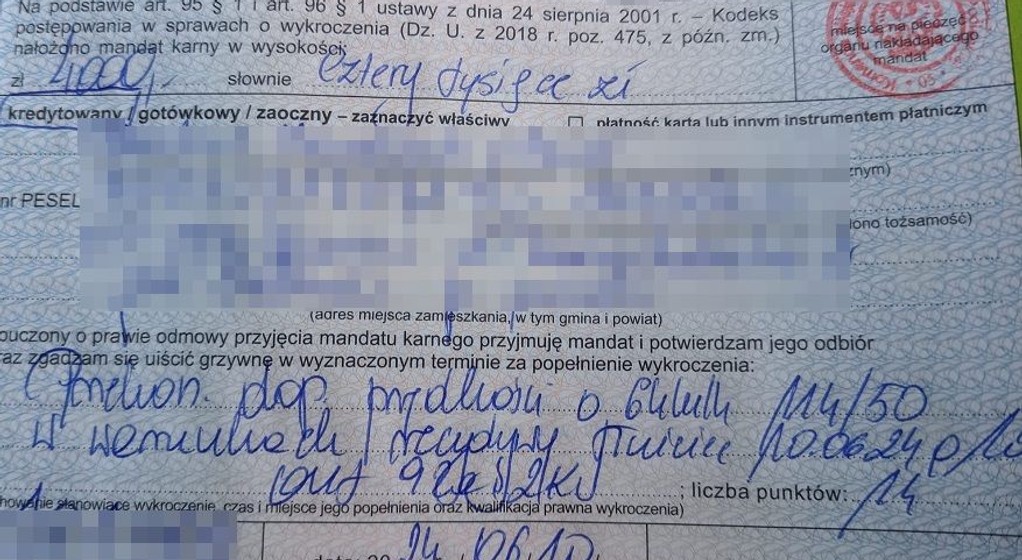 Na podstawie art. 95 § 1 i art. 96 § 1 ustawy z dnia 24 sierpnia 2001 r. – Kodeks
postępowania w sprawach o wykroczenia (Dz. U. z 2018 r. poz. 475, z późn. zm.)
nałożono mandat karny w wysokości:
miejsce na pieczęć
organu nakładającego
mandat
zł 4000,- słownie cztery tysiące zł
kredytowany / gotówkowy / zaoczny – zaznaczyć właściwy
płatność kartą lub innym instrumentem płatniczym
znym)
nr PESEL
iono tożsamość)
(adres miejsca zamieszkania, w tym gmina i powiat)
ouczony o prawie odmowy przyjęcia mandatu karnego przyjmuję mandat i potwierdzam jego odbiór
az zgadzam się uiścić grzywnę w wyznaczonym terminie za popełnienie wykroczenia:
dop. prędkości o 64 km/h 114/50
w warunkach recydywy 10.06.24
92a § 2 KW ; liczba punktów: 14
howanie stanowiące wykroczenie, czas i miejsce jego popełnienia oraz kwalifikacja prawna wykroczenia)
24 06 10